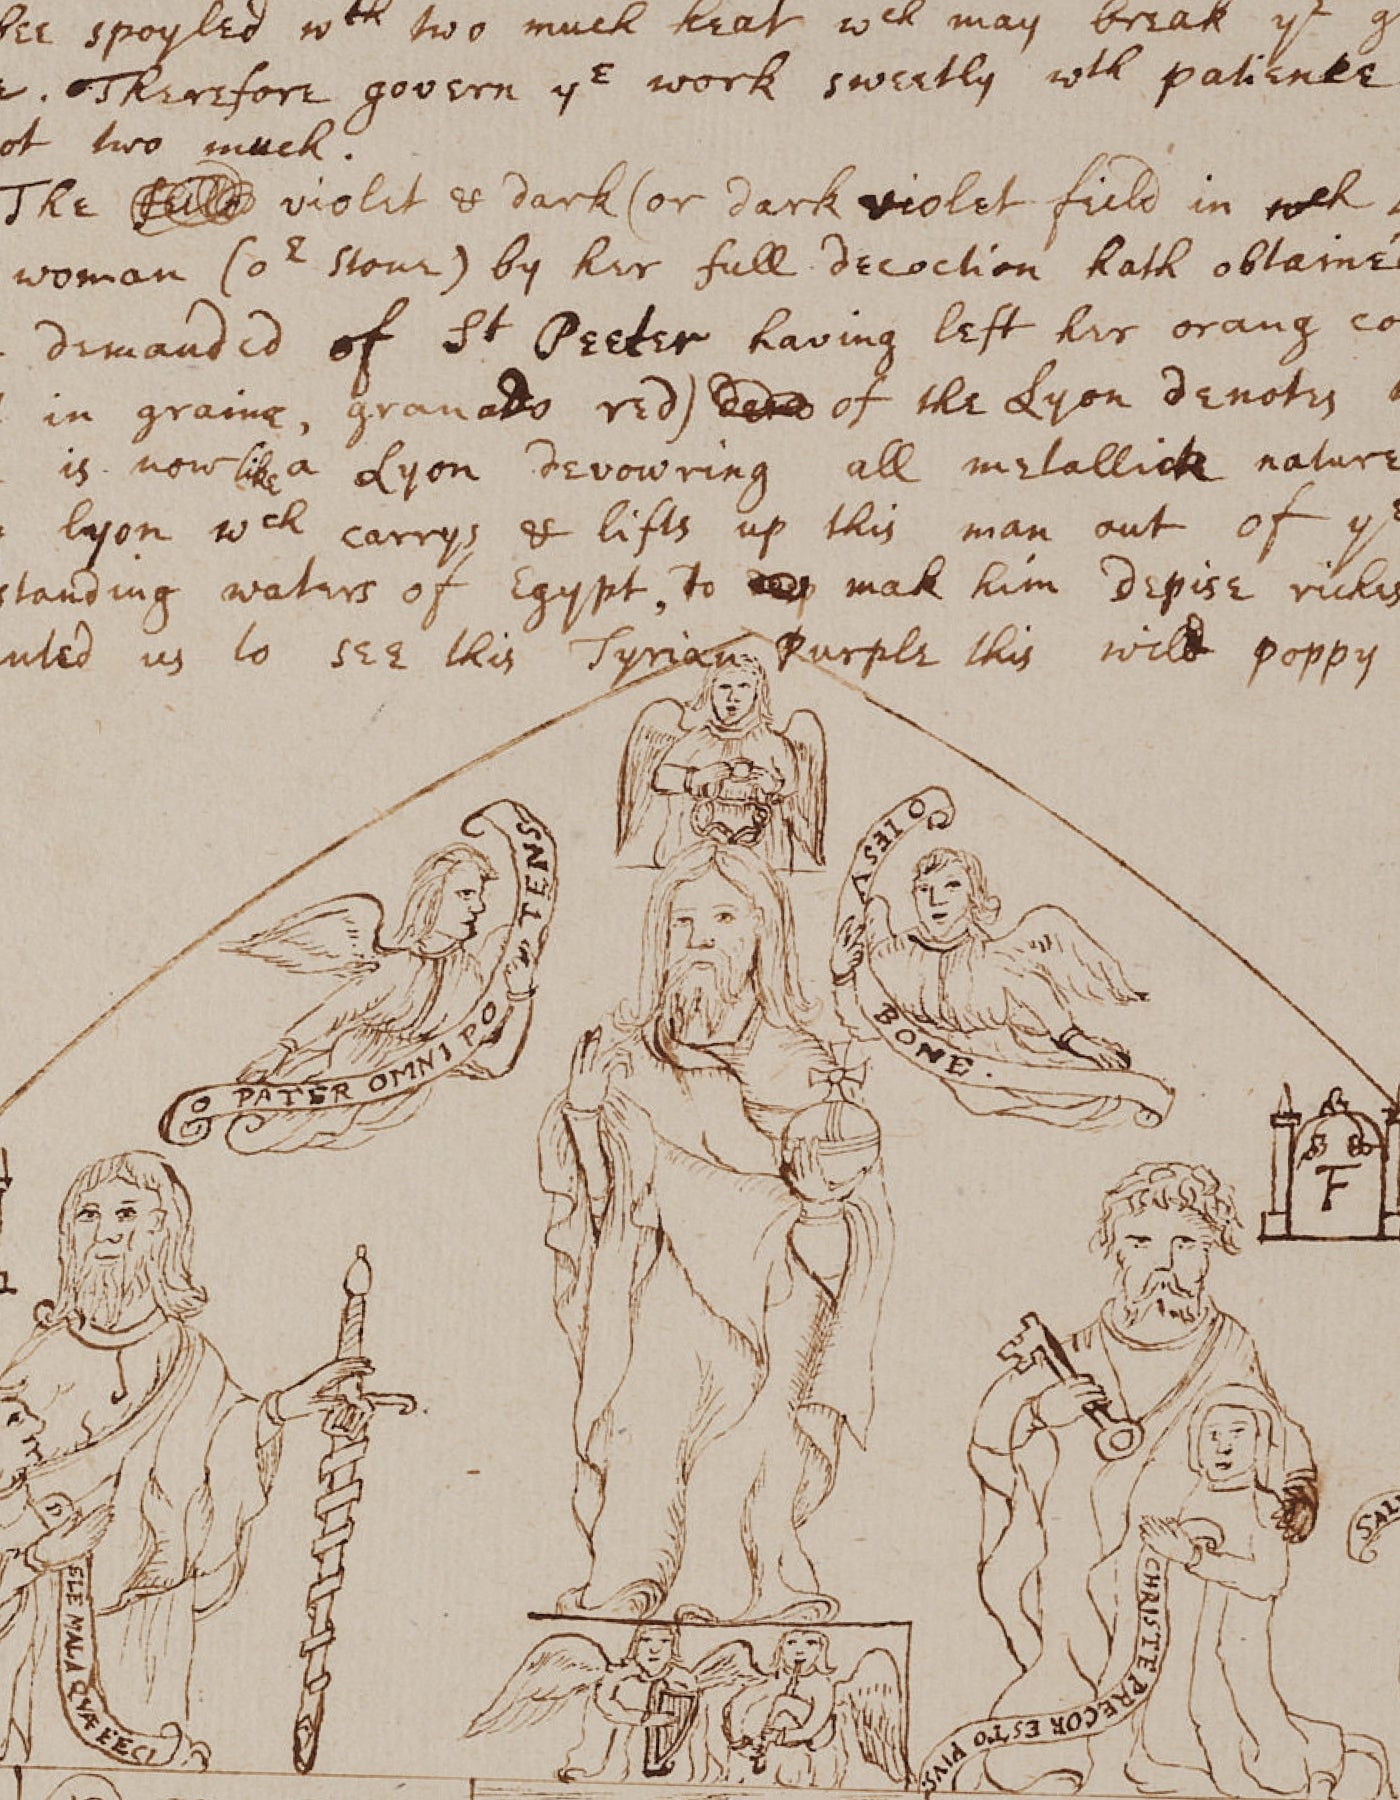 bee spoyled wth two much heat wch may break ye g
e. Therefore govern yE work sweetly wth patience
ot two much.
The violet & dark (or dark violet field in wch
woman (oE stone) by her full decoction hath obtained
demanded of St Peeter having left her orang co
in graine, granado red) of the Lyon denotes
is now like a Lyon devowring all metallick nature
lyon wch carrys & lifts up this man out of yE
standing waters of Egypt, to mak him depise riches
us to see this Tyrian Purple this wild poppy
O PATER OMNIPOTENS
O IESV BONE.
F
ELE MALA QVÆ FECI
CHRISTE PRECOR ESTO PIVS.
SAL